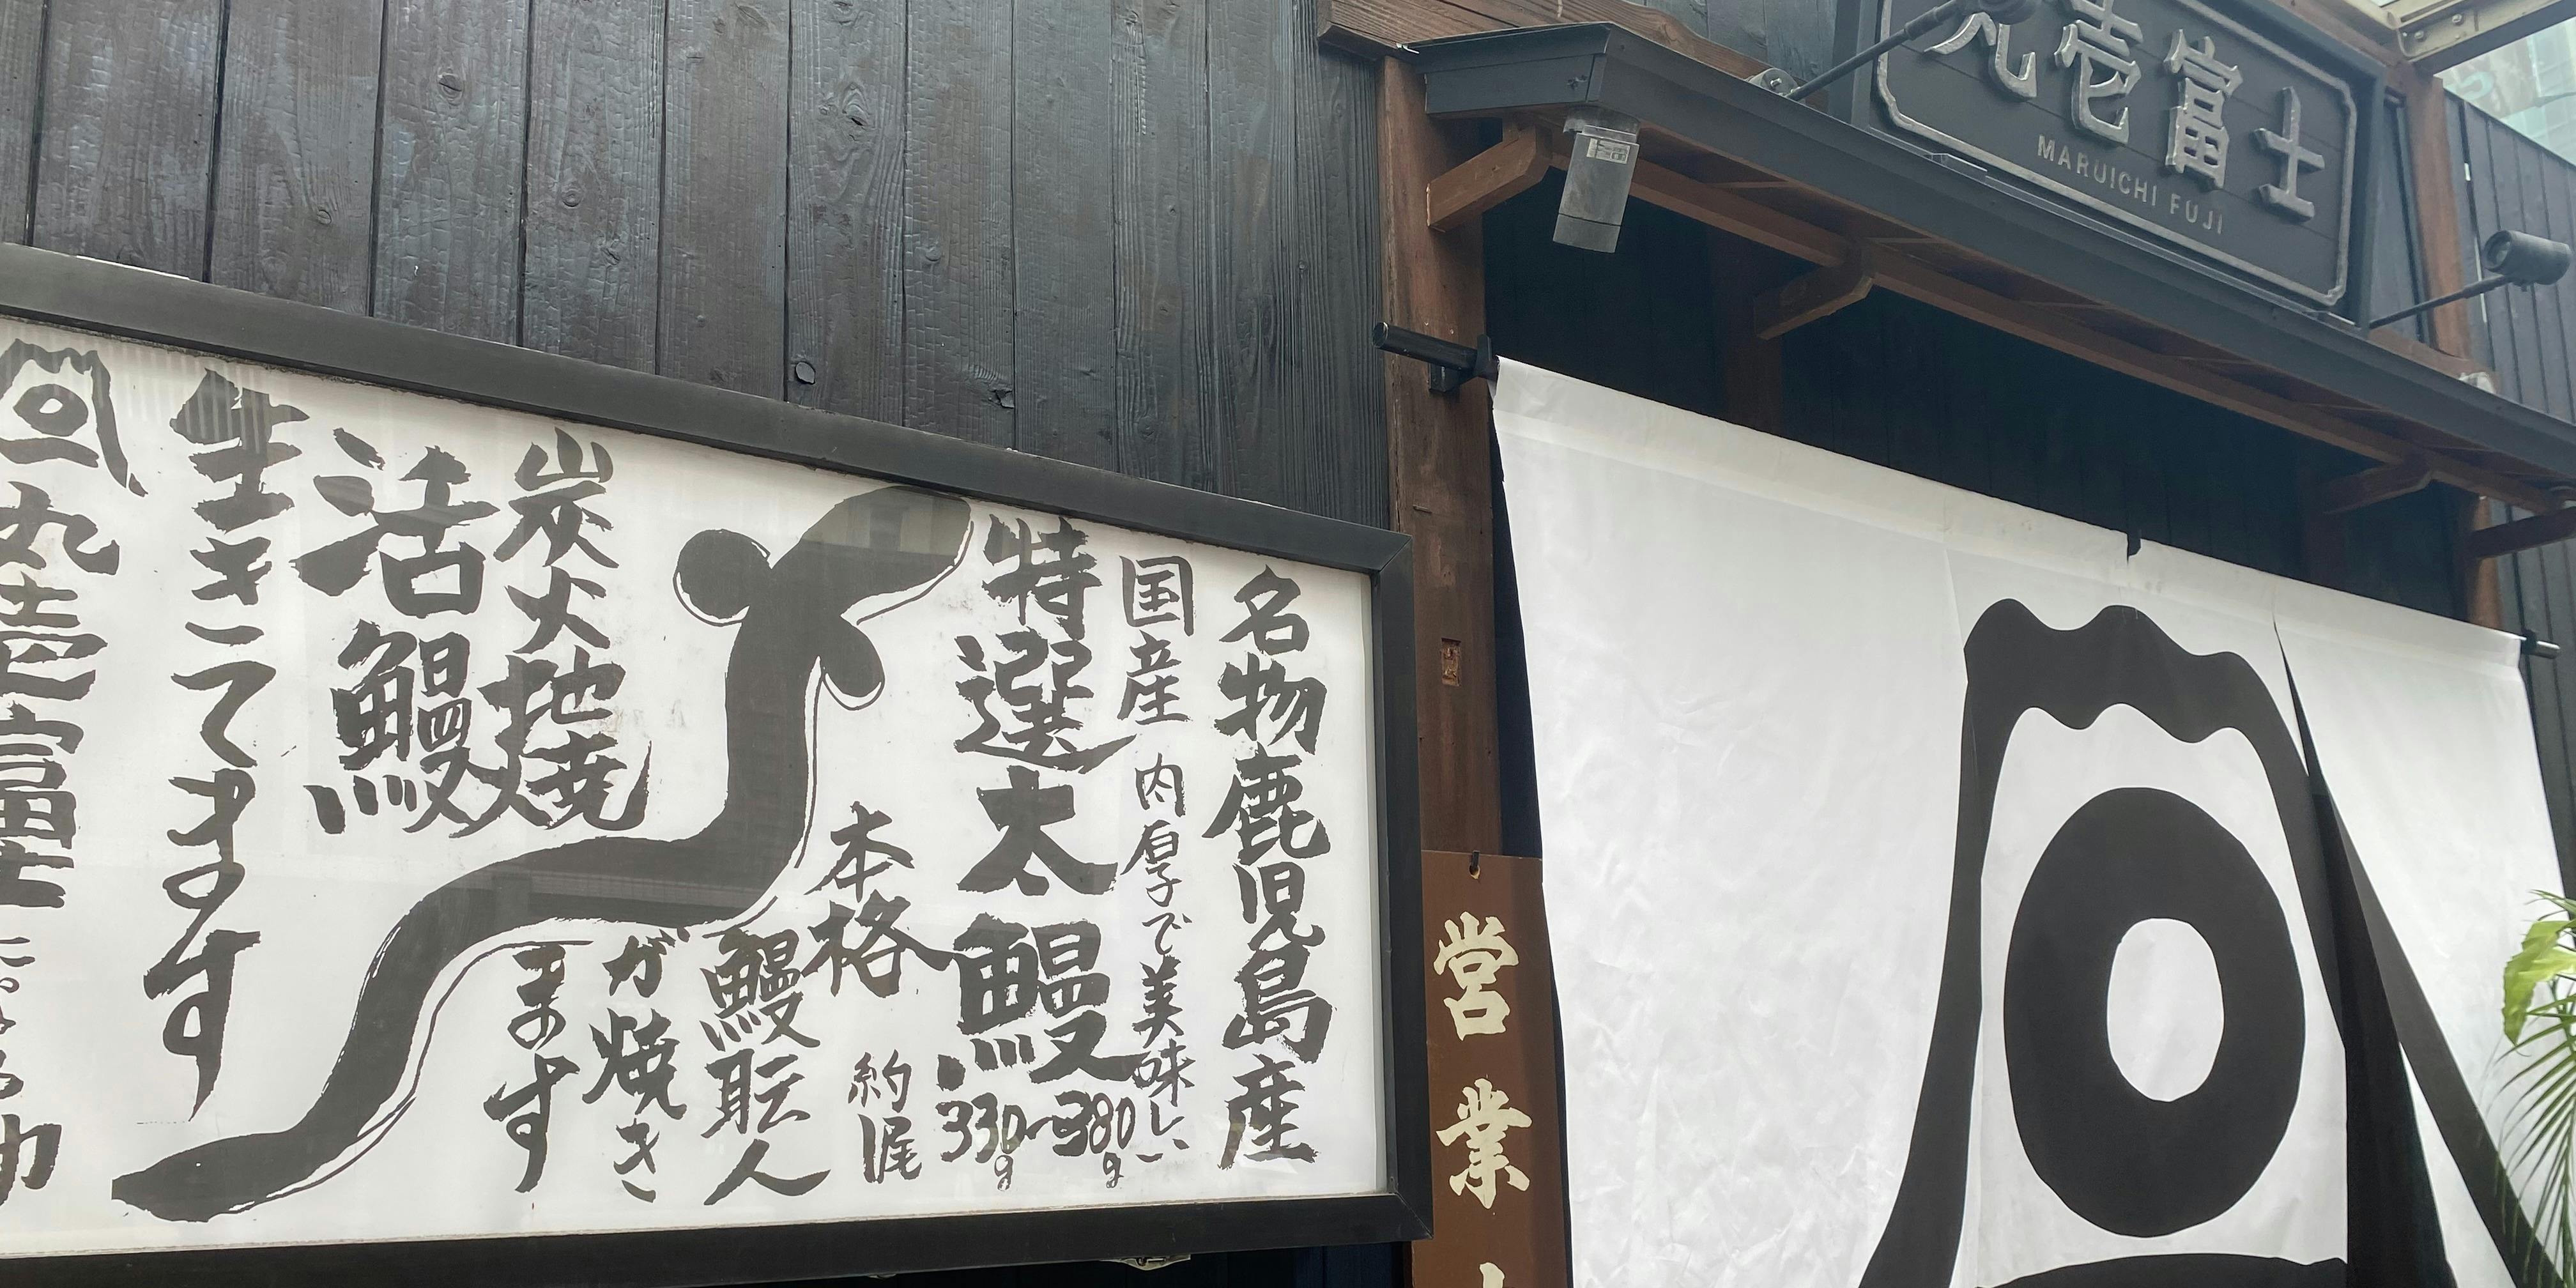 名物鹿児島産
国産 内厚で美味しい
特選太鰻
330g~380g
約尾
本格
鰻職人
が焼き
ます
炭火地焼
活鰻
生きてます
丸壱富士
丸壱富士
MARUICHI FUJI
営業